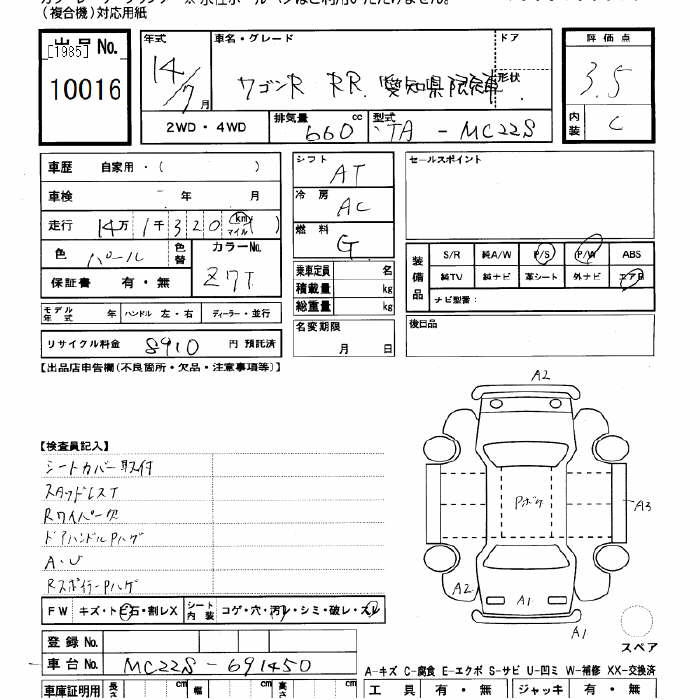 (複合機)対応用紙
出品No.
[1985]
10016
年式 車名・グレード ドア 形状
14/7月 ワゴンR RR. 愛知県限定車
2WD・4WD 排気量 660 cc 型式 TA - MC22S
評価点
3.5
内装 C
車歴 自家用・( )
車検 年 月
走行 14万 1千 3 2 0 km マイル ( )
色 パール 色替 カラーNo. Z7T
保証書 有・無
モデル年式 年 ハンドル 左・右 ディーラー・並行
リサイクル料金 8910 円 預託済
シフト AT
冷房 AC
燃料 G
乗車定員 名
積載量 kg
総重量 kg
名変期限
月 日
セールスポイント
装備品 S/R 純A/W P/S P/W ABS
純TV 純ナビ 革シート 外ナビ エアB
ナビ型番:
後日品
【出品店申告欄(不良箇所・欠品・注意事項等)】
【検査員記入】
シートカバー取付
スタッドレスT
Rワイパー欠
ドアハンドルPハゲ
A・U
RスポイラーPハゲ
A2
Pボケ
A3
A2
A1
A1
スペア
FW キズ・トビ石・割レX シート内装 コゲ・穴・汚レ・シミ・破レ・スレ
登録No.
車台No. MC22S-691450
A-キズ C-腐食 E-エクボ S-サビ U-凹ミ W-補修 XX-交換済
車庫証明用 長さ cm 幅 cm 高さ cm
工具 有・無 ジャッキ 有・無